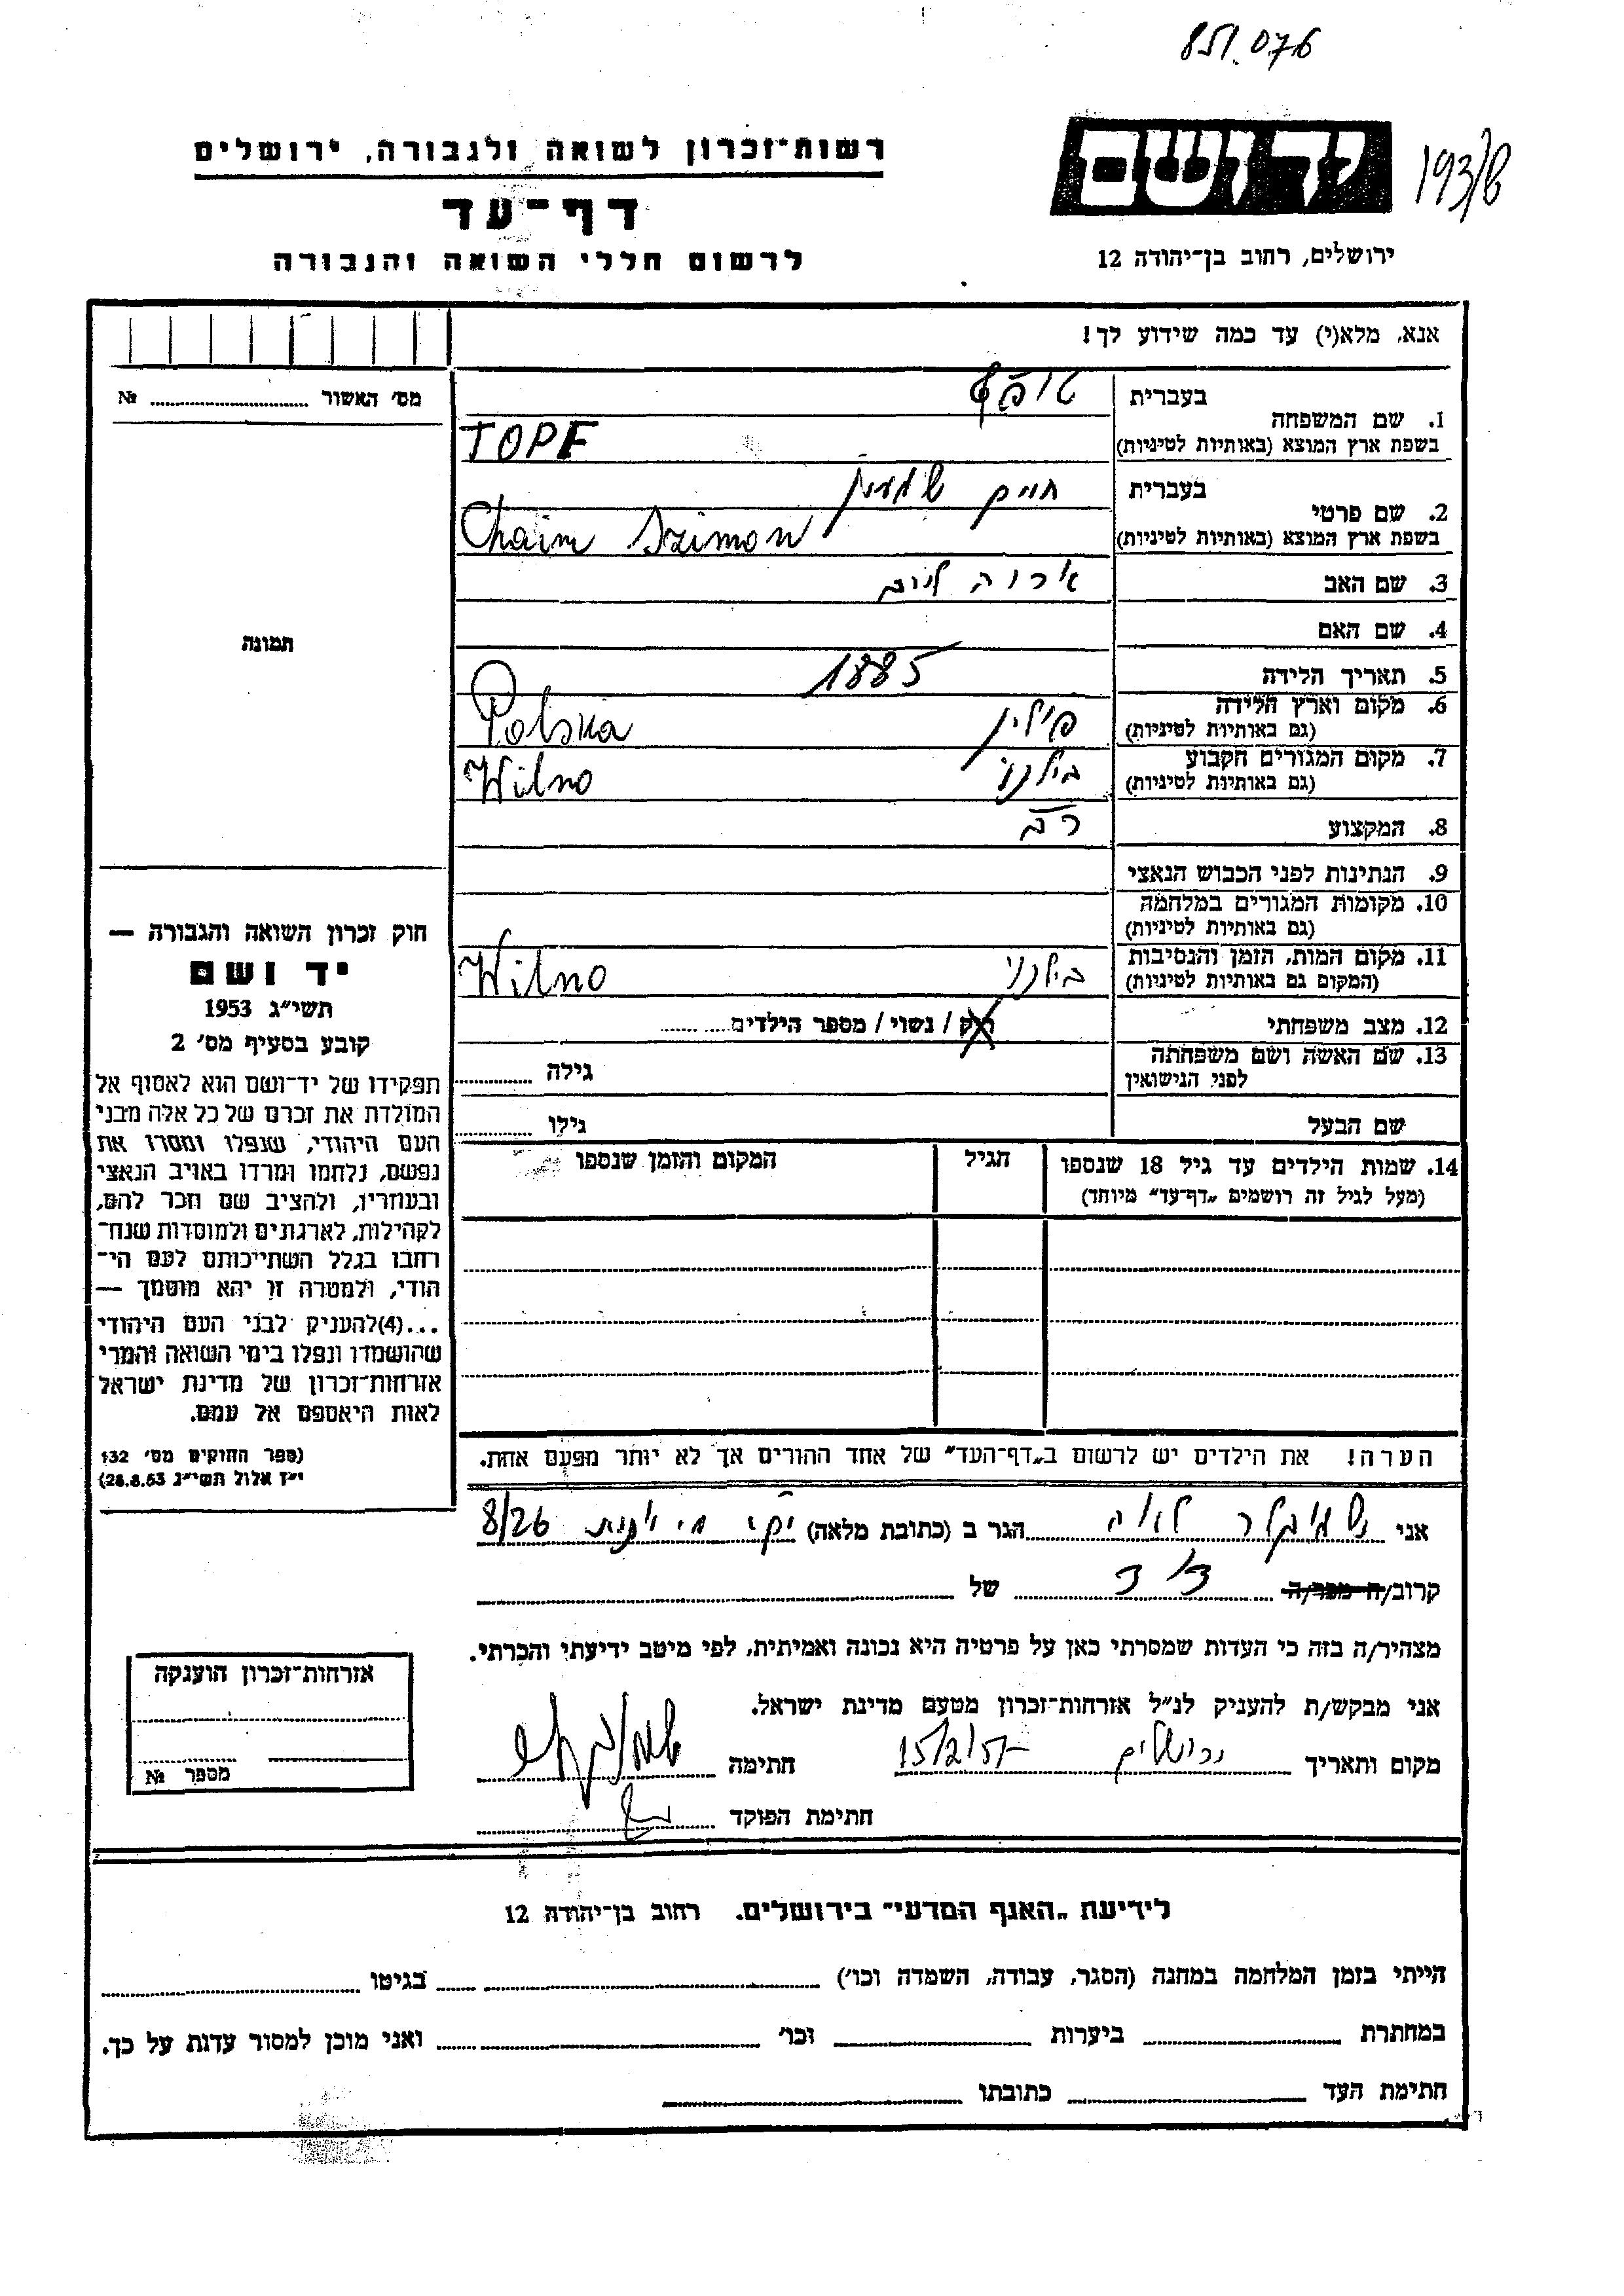 851.076
רשות־זכרון לשואה ולגבורה, ירושלים
יד ושם
193/ש
דף־עד
לרשום חללי השואה והגבורה
ירושלים, רחוב בן־יהודה 12
אנא, מלא(י) עד כמה שידוע לך!
מס' האשור № 
1. שם המשפחה בעברית טופף
בשפת ארץ המוצא (באותיות לטיניות) TOPF
2. שם פרטי בעברית חיים שמעון
בשפת ארץ המוצא (באותיות לטיניות) Chaim Szimon
3. שם האב
4. שם האם
5. תאריך הלידה 1885
6. מקום וארץ הלידה פולין Polska
(גם באותיות לטיניות)
7. מקום המגורים הקבוע וילנה Wilno
(גם באותיות לטיניות)
8. המקצוע רב
9. הנתינות לפני הכבוש הנאצי
10. מקומות המגורים במלחמה
(גם באותיות לטיניות)
11. מקום המות, הזמן והנסיבות Wilno
(המקום גם באותיות לטיניות)
12. מצב משפחתי רוק / נשוי / מספר הילדים
13. שם האשה ושם משפחתה גילה
לפני הנישואין
שם הבעל גילו
14. שמות הילדים עד גיל 18 שנספו הגיל המקום והזמן שנספו
(מעל לגיל זה רושמים „דף־עד” מיוחד)
תמונה
חוק זכרון השואה והגבורה —
יד ושם
תשי״ג 1953
קובע בסעיף מס' 2
תפקידו של יד־ושם הוא לאסוף אל
המולדת את זכרם של כל אלה מבני
העם היהודי, שנפלו ומסרו את
נפשם, נלחמו ומרדו באויב הנאצי
ובעוזריו, ולהציב שם וזכר להם,
לקהילות, לארגונים ולמוסדות שנח־
רבו בגלל השתייכותם לעם הי־
הודי, ולמטרה זו יהא מוסמך —
...(4)להעניק לבני העם היהודי
שהושמדו ונפלו בימי השואה והמרי
אזרחות־זכרון של מדינת ישראל
לאות היאספם אל עמם.
(ספר החוקים מס' 132
י״ז אלול תשי״ג 28.8.53)
הערה! את הילדים יש לרשום ב„דף־העד” של אחד ההורים אך לא יותר מפעם אחת.
אני לאה הגר ב (כתובת מלאה) 8/26
קרוב/ה מכר/ה דוד של
מצהיר/ה בזה כי העדות שמסרתי כאן על פרטיה היא נכונה ואמיתית, לפי מיטב ידיעתי והכרתי.
אני מבקש/ת להעניק לנ״ל אזרחות־זכרון מטעם מדינת ישראל.
מקום ותאריך ירושלים 15/2/57 חתימה
חתימת הפוקד
אזרחות־זכרון הוענקה
מספר №
לידיעת „האגף המדעי” בירושלים. רחוב בן־יהודה 12
הייתי בזמן המלחמה במחנה (הסגר, עבודה, השמדה וכו') בגיטו
במחתרת ביערות וכו' ואני מוכן למסור עדות על כך.
חתימת העד כתובתו